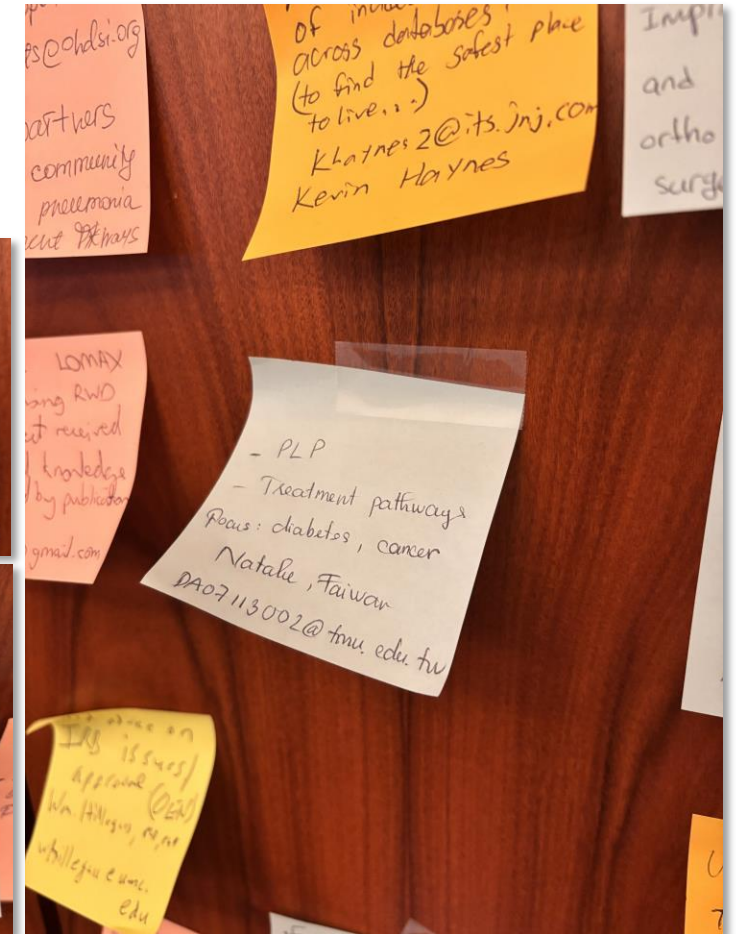 es@ohdsi.org
partners
community
pneumonia
Pathways
of
across databases
(to find the safest place
to live...)
Khaynes2@its.jnj.com
Kevin Haynes
Impl
and
ortho
surge
LOMAX
using RWD
received
knowledge
by publication
gmail.com
- PLP
- Treatment pathways
Focus: diabetes, cancer
Natalie, Taiwan
DA07113002@tmu.edu.tw
on
IRB issues/
approval
edu